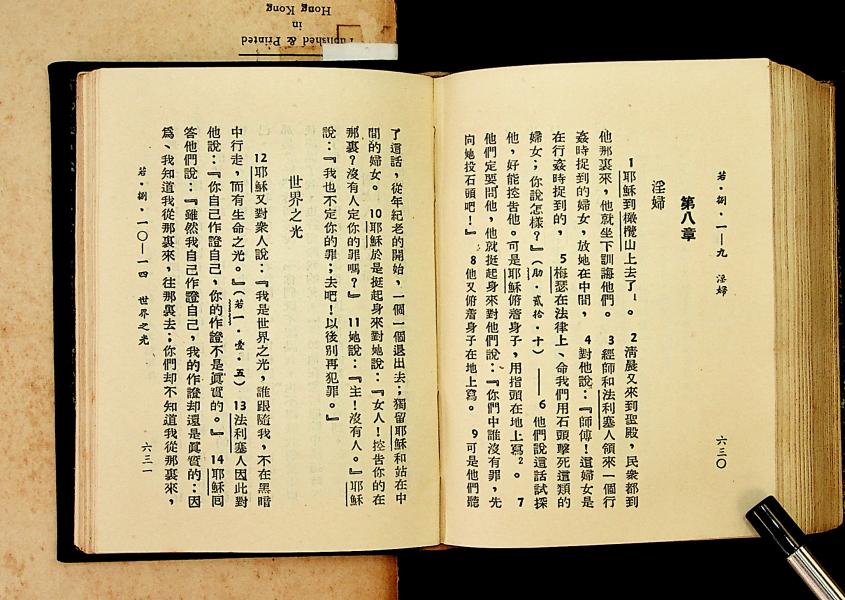 Published & Printed
in
Hong Kong
若·捌·一—九　淫婦
六三〇
第八章
淫婦
1 耶穌到橄欖山上去了¹。　2 清晨又來到聖殿，民衆都到
他那裏來，他就坐下訓誨他們。　3 經師和法利塞人領來一個行
姦時捉到的婦女，放她在中間，　4 對他說：『師傅！這婦女是
在行姦時捉到的，　5 梅瑟在法律上、命我們用石頭擊死這類的
婦女；你說怎樣？』（肋·貳拾·十）——6 他們說這話試探
他，好能控告他。可是耶穌俯着身子，用指頭在地上寫²。　7
他們定要問他，他就挺起身來對他們說：『你們中誰沒有罪，先
向她投石頭吧！』　8 他又俯着身子在地上寫。　9 可是他們聽
了這話，從年紀老的開始，一個一個退出去；獨留耶穌和站在中
間的婦女。　10 耶穌於是挺起身來對她說：『女人！控告你的在
那裏？沒有人定你的罪嗎？』　11 她說：『主！沒有人。』耶穌
說：『我也不定你的罪；去吧！以後別再犯罪。』
世界之光
12 耶穌又對衆人說：『我是世界之光，誰跟隨我，不在黑暗
中行走，而有生命之光。』（若一·壹·五）　13 法利塞人因此對
他說：『你自己作證自己，你的作證不是眞實的。』　14 耶穌囘
答他們說：『雖然我自己作證自己，我的作證却還是眞實的：因
爲、我知道我從那裏來，往那裏去；你們却不知道我從那裏來，
若·捌·一〇—一四　世界之光
六三一